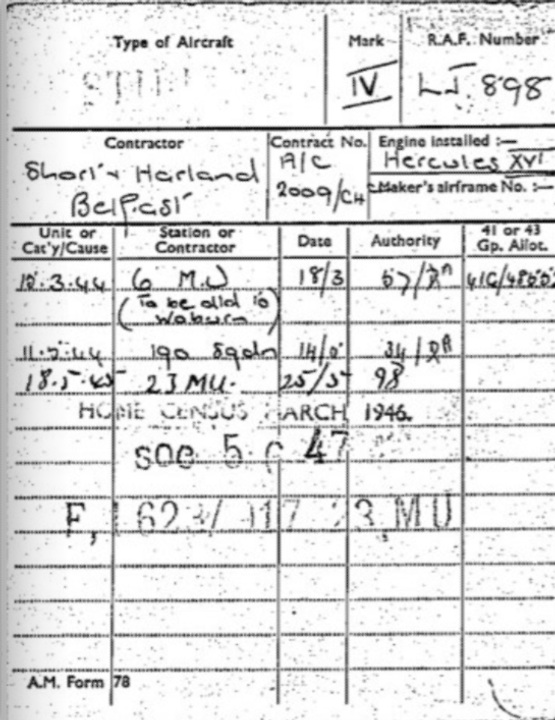 Type of Aircraft
Mark
R.A.F. Number
IV
LJ.898
Contractor
Contract No.
Engine installed :—
Short & Harland
Belfast
A/C
2009/C4
Hercules XVI
Maker's airframe No. :—
Unit or Cat'y/Cause
Station or Contractor
Date
Authority
41 or 43 Gp. Allot.
3.44 6 M.U 18/3
(To be alld to
Woburn)
190 Sqdn
18.5.45 23 MU. 25/5 98
HOME CENSUS MARCH 1946.
SOC 5 6 47
23 MU
A.M. Form 78